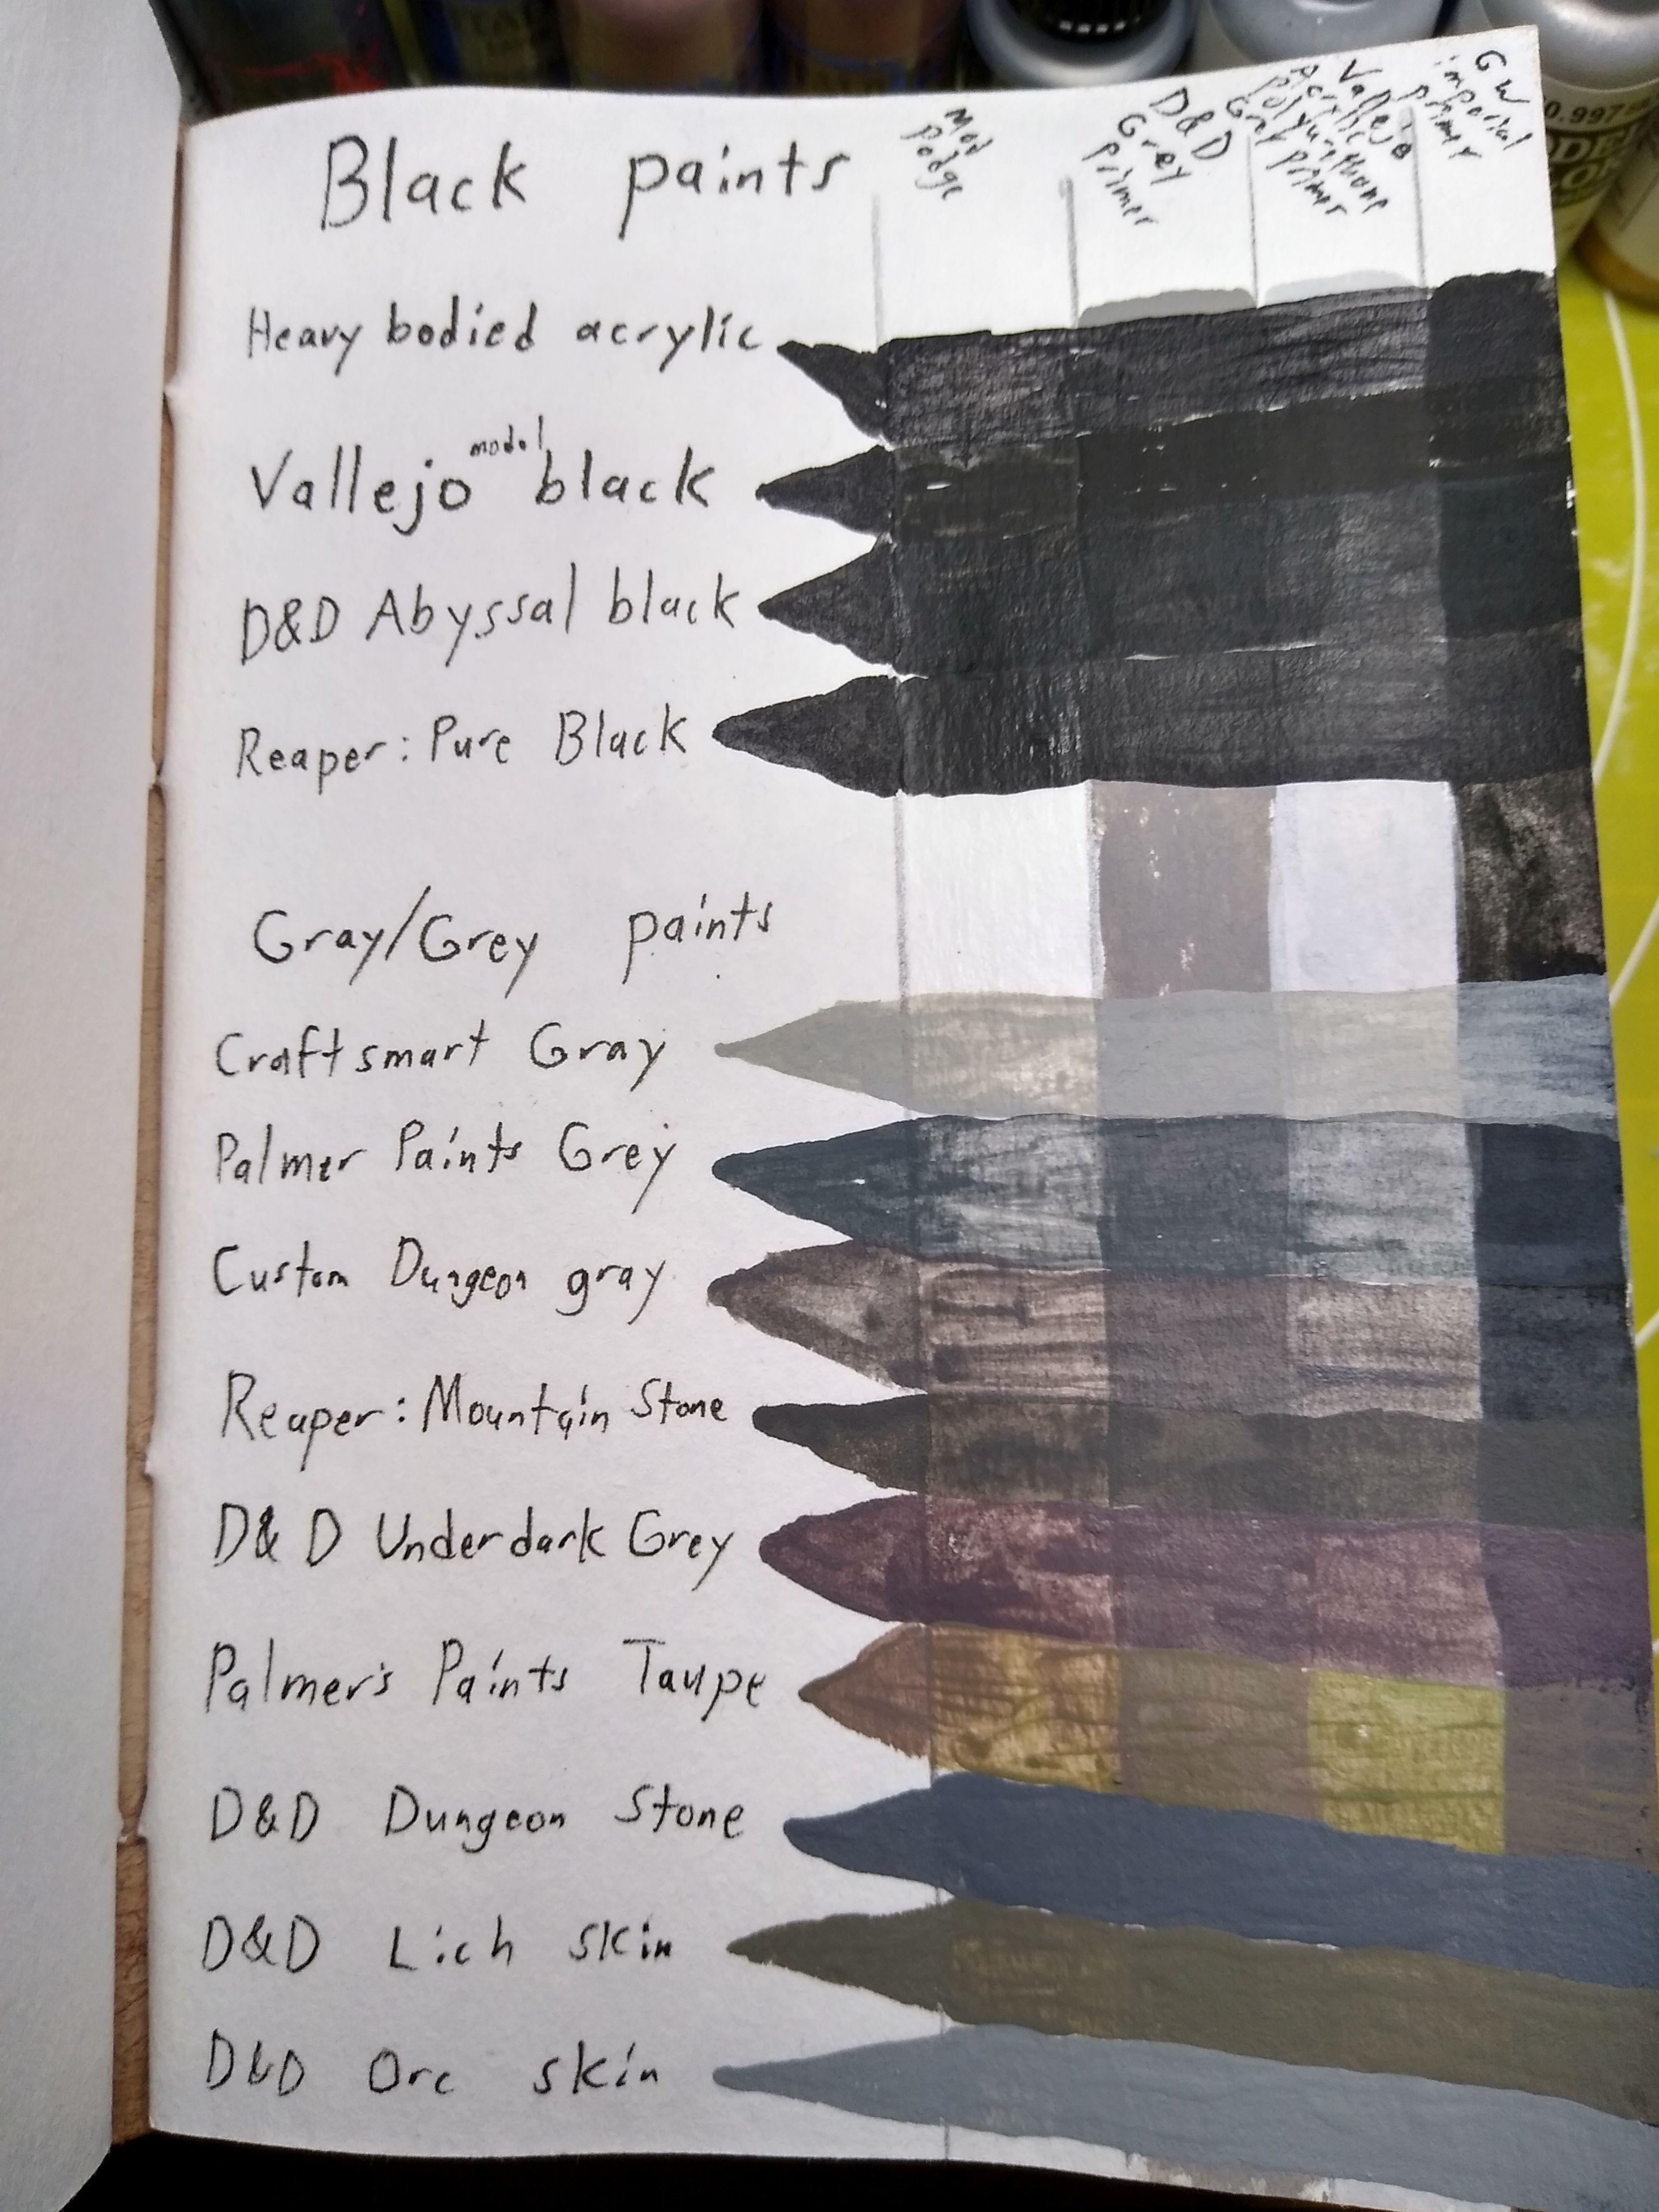 Black paints
Mod
Podge
D&D
Grey
primer
Vallejo
Acrylic
Polyurethane
Grey primer
GW
imperial
primer
Heavy bodied acrylic
Vallejo model black
D&D Abyssal black
Reaper: Pure Black
Gray/Grey paints
Craftsmart Gray
Palmer Paints Grey
Custom Dungeon gray
Reaper: Mountain Stone
D&D Underdark Grey
Palmer's Paints Taupe
D&D Dungeon Stone
D&D Lich skin
D&D Orc skin